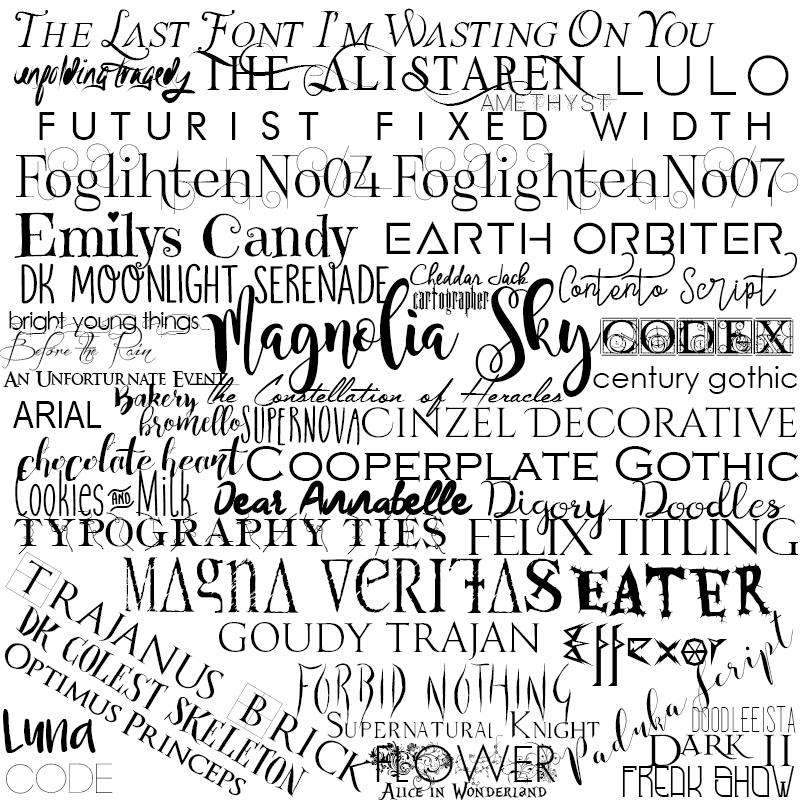 The Last Font I'm Wasting On You
unfolding tragedy The Alistaren LULO
AMETHYST
FUTURIST FIXED WIDTH
FoglihtenNo04 FoglightenNo07
Emilys Candy EARTH ORBITER
DK MOONLIGHT SERENADE Cheddar Jack Contento Script
cartographer
bright young things Magnolia Sky CODEX
Before the Rain
An Unforturnate Event century gothic
the Constellation of Heracles
ARIAL Bakery bromello SUPERNOVA Cinzel Decorative
chocolate heart Cooperplate Gothic
Cookies AND Milk Dear Annabelle Digory Doodles
TYPOGRAPHY TIES FELIX TITLING
Magna Veritas EATER
TRAJANUS BRICK
GOUDY TRAJAN Effexor
DK COLEST SKELETON
Optimus Princeps
FORBID NOTHING
Paduka Script
Supernatural Knight
Luna DOODLEEISTA
Dark II
CODE FLOWER FREAK SHOW
Alice in Wonderland